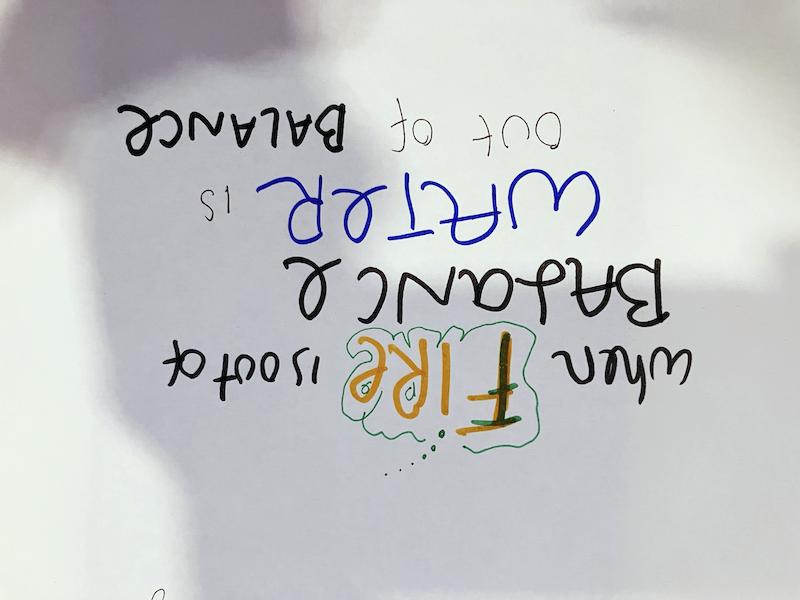 when FIRe is out of
BAlaNCe
WATeR is
OUT OF BALANCe